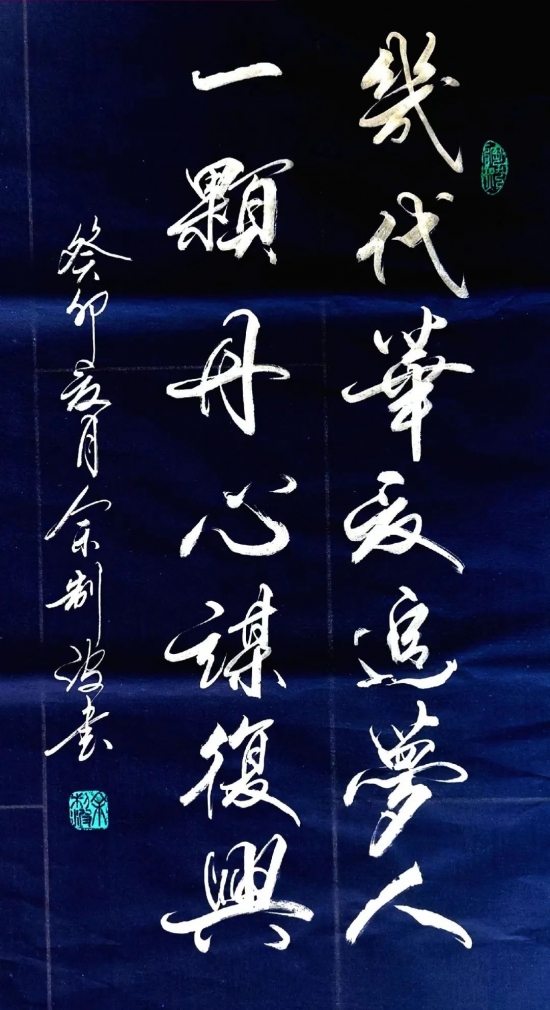 幾代華夏追夢人
一顆丹心謀復興
癸卯夏月余制波書